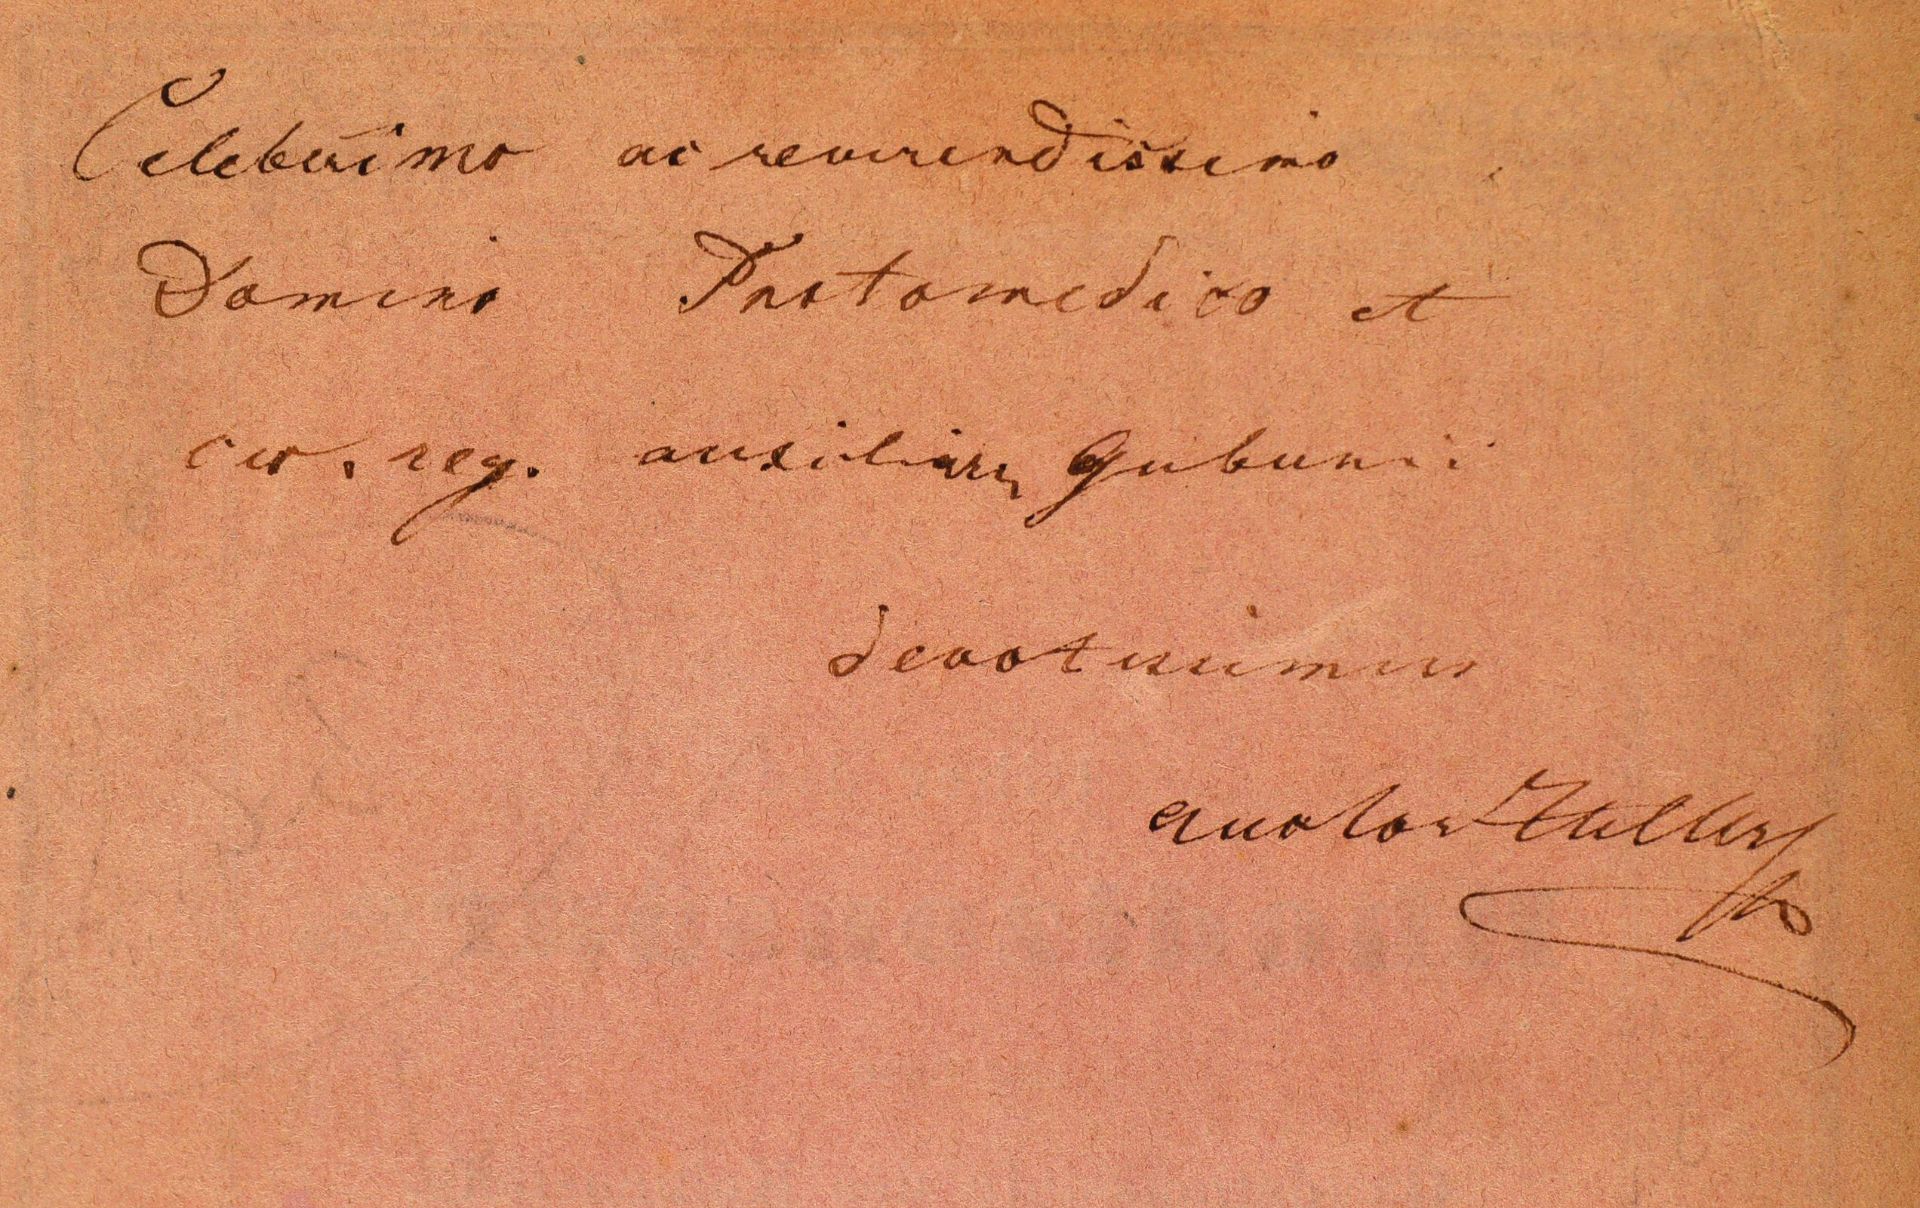 Celeberrimo ac reverendissimo
Domino Protomedico et
cæs. reg. auxiliari Guberni
devotissimus
auctor